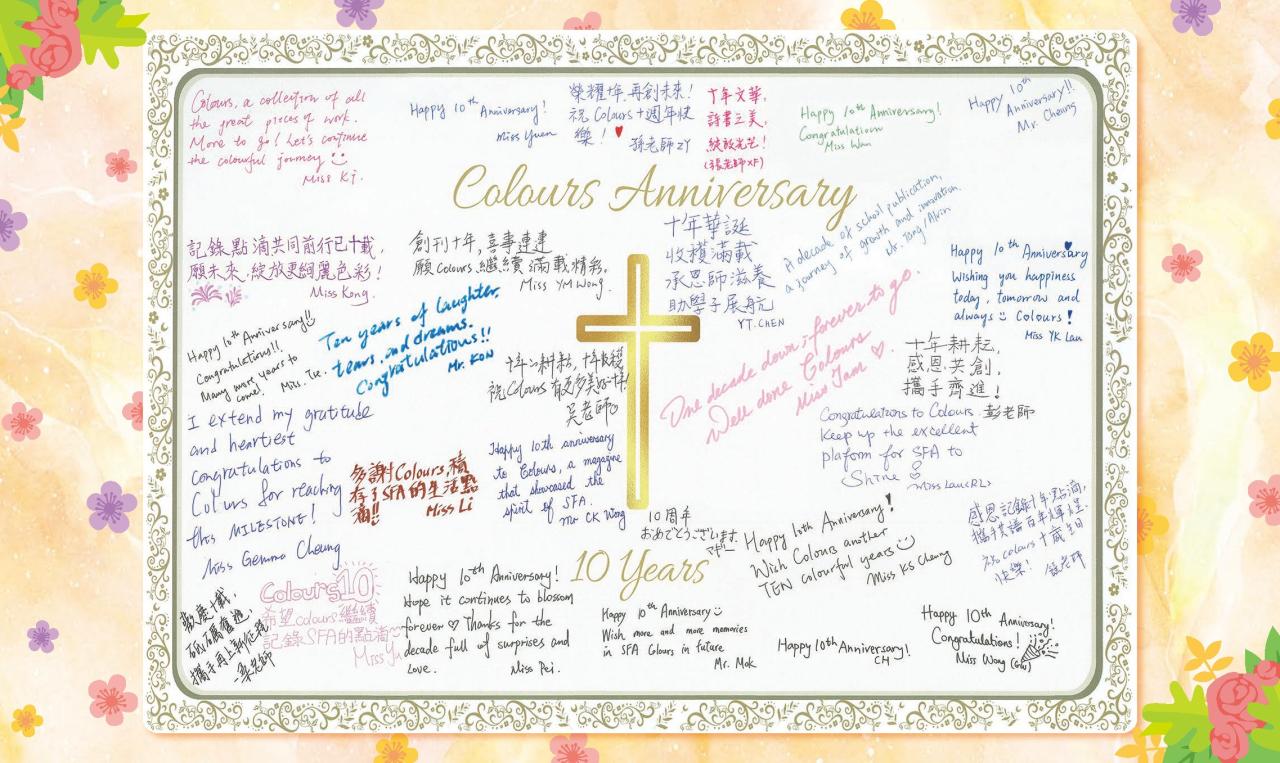 Colours, a collection of all
the great pieces of work.
More to go! Let's continue
the colourful journey
Miss Ki.
Happy 10th Anniversary!
Miss Yuen
榮耀十年.再創未來!
祝 Colours 十週年快
樂!
孫老師 ZY
十年文華,
詩書之美,
綻放光芒!
(張老師XF)
Happy 10th Anniversary!
Congratulation
Miss Wan
Happy 10th
Anniversary!!
Mr. Cheung
Colours Anniversary
記錄點滴共同前行已十載,
願未來.綻放更絢麗色彩!
Miss Kong.
創刊十年,喜事連連
願Colours 繼續滿載精彩.
Miss YM Wong.
十年華誕
收穫滿載
承恩師滋養
助學子展航
YT.CHEN
A decade of school publication,
a journey of growth and innovation.
Mr. Tang/Alvin
Happy 10th Anniversary
Wishing you happiness
today, tomorrow and
always Colours!
Miss YK Lau
Happy 10th Anniversary!!
Congratulations!!
Many more years to
come!
Miss. Tse.
Ten years of laughter,
tears, and dreams.
Congratulations!!
Mr. KON
十年耕耘, 十年收穫
祝Colours 有更多美好十年!
吳老師
One decade down; forever to go.
Well done Colours
Miss Tam
十年耕耘,
感恩共創,
攜手齊進!
彭老師
I extend my gratitude
and heartiest
congratulations to
Colours for reaching
this MILESTONE!
Miss Gemma Cheung
多謝Colours,積
存了SFA的生活點
滴!!
Miss Li
Happy 10th anniversary
to Colours, a magazine
that showcased the
spirit of SFA.
Mr CK Wong
Congratulations to Colours.
Keep up the excellent
plaform for SFA to
Shine
Miss Lau(RL)
10周年
おめでとうございます.
Happy 10th Anniversary!
Wish Colours another
TEN colourful years
Miss KS Cheung
感恩記錄十年點滴,
祝colours十歲生日
快樂!
10 Years
歡慶十載,
砥礪奮進,
攜手再上新征程!
Colours 10
希望colours繼續
記錄SFA的點滴
Miss Yu
Happy 10th Anniversary!
Hope it continues to blossom
forever Thanks for the
decade full of surprises and
love.
Miss Pei.
Happy 10th Anniversary
Wish more and more memories
in SFA Colours in future
Mr. Mak
Happy 10th Anniversary!
CH
Happy 10th Anniversary!
Congratulations!
Miss Wong (GW)